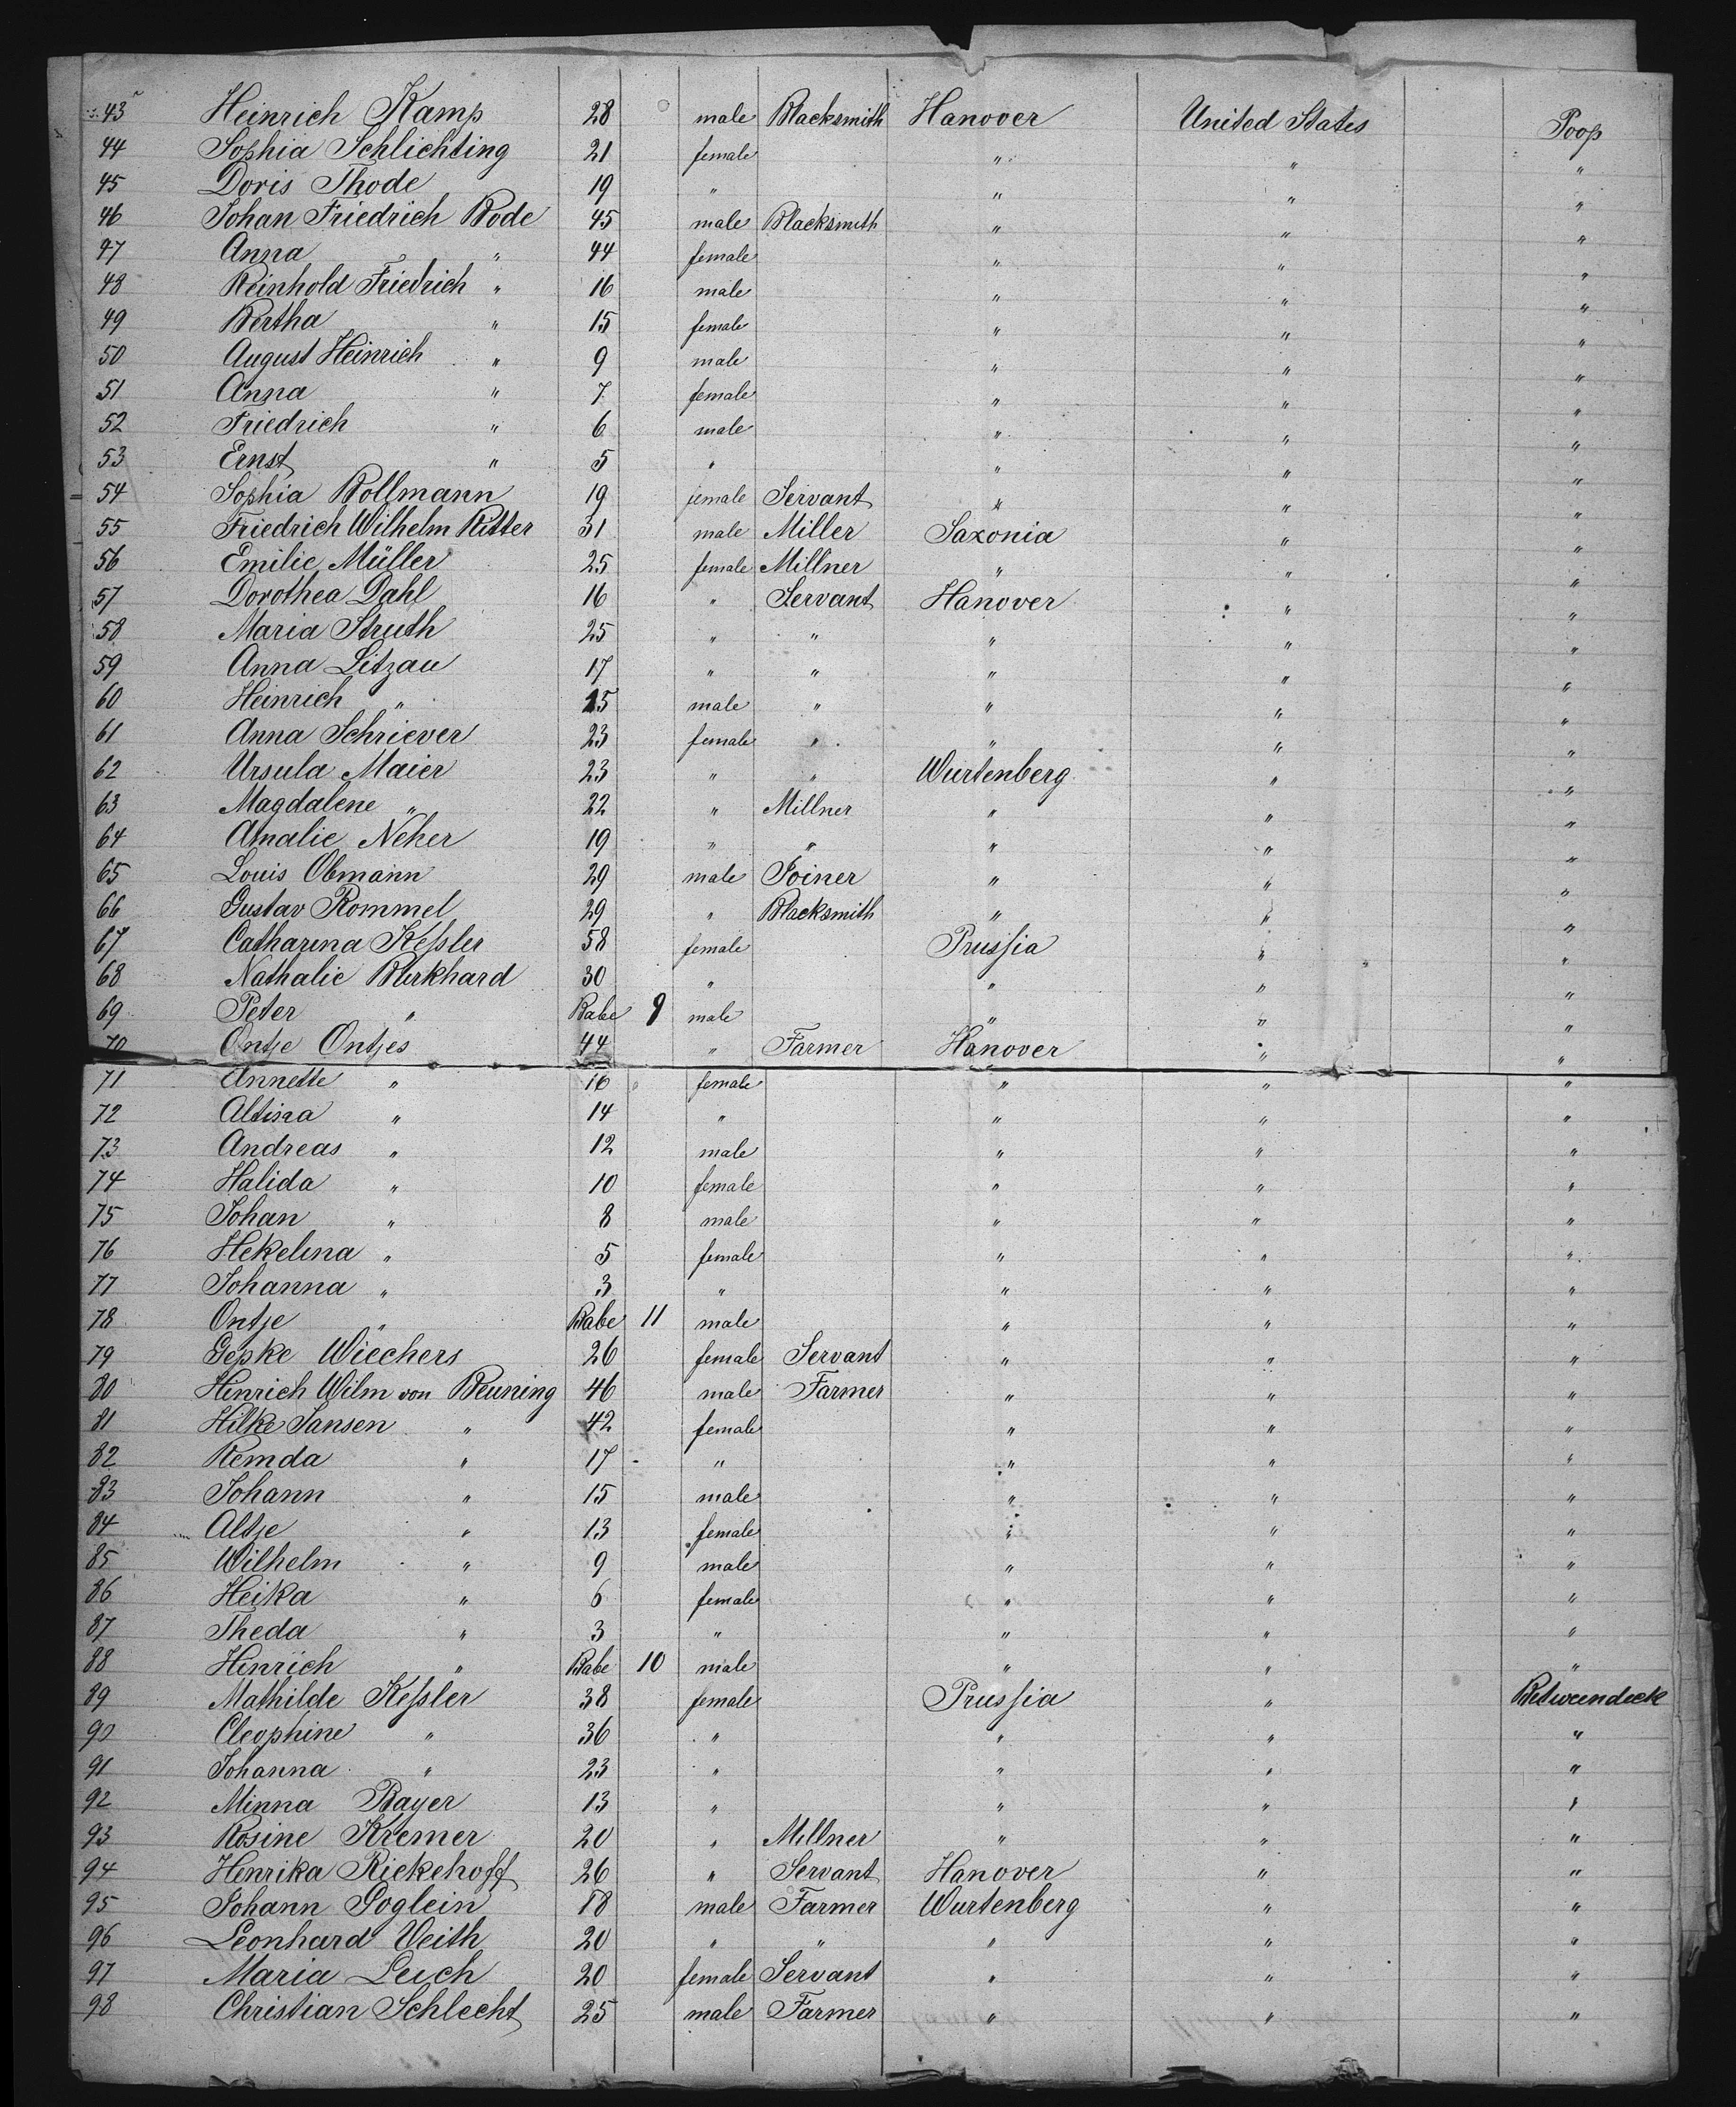 43 Heinrich Kamp 28 male Blacksmith Hanover United States Poop
44 Sophia Schlichting 21 female " " "
45 Doris Thode 19 " " " "
46 Johan Friedrich Bode 45 male Blacksmith " " "
47 Anna " 44 female " " "
48 Reinhold Friedrich " 16 male " " "
49 Bertha " 15 female " " "
50 August Heinrich " 9 male " " "
51 Anna " 7 female " " "
52 Friedrich " 6 male " " "
53 Ernst " 5 " " " "
54 Sophia Bollmann 19 female Servant " " "
55 Friedrich Wilhelm Ritter 31 male Miller Saxonia " "
56 Emilie Müller 25 female Millner " " "
57 Dorothea Dahl 16 " Servant Hanover " "
58 Maria Struth 25 " " " " "
59 Anna Litzau 17 " " " " "
60 Heinrich " 15 male " " " "
61 Anna Schriever 23 female " " " "
62 Ursula Maier 23 " " Wurtenberg " "
63 Magdalene " 22 " Millner " " "
64 Amalie Neher 19 " " " " "
65 Louis Obmann 29 male Joiner " " "
66 Gustav Rommel 29 " Blacksmith " " "
67 Catharina Kessler 58 female Prussia " "
68 Nathalie Burkhard 30 " " " "
69 Peter " Babe 9 male " " "
70 Ontje Ontjes 44 " Farmer Hanover " "
71 Annette " 16 female " " "
72 Altina " 14 " " " "
73 Andreas " 12 male " " "
74 Halida " 10 female " " "
75 Johan " 8 male " " "
76 Hekelina " 5 female " " "
77 Johanna " 3 " " " "
78 Ontje " Babe 11 male " " "
79 Gepke Wiechers 26 female Servant " " "
80 Hinrich Wilm von Beuning 46 male Farmer " " "
81 Hilke Jansen " 42 female " " "
82 Remda " 17 " " " "
83 Johann " 15 male " " "
84 Altje " 13 female " " "
85 Wilhelm " 9 male " " "
86 Heika " 6 female " " "
87 Theda " 3 " " " "
88 Hinrich " Babe 10 male " " "
89 Mathilde Kessler 38 female Prussia " Betweendeck
90 Cleophine " 36 " " " "
91 Johanna " 23 " " " "
92 Minna Bayer 13 " " " "
93 Rosine Kremer 20 " Millner " " "
94 Henrika Rickehoff 26 " Servant Hanover " "
95 Johann Goglein 18 male Farmer Wurtenberg " "
96 Leonhard Veith 20 " " " " "
97 Maria Leich 20 female Servant " " "
98 Christian Schlecht 25 male Farmer " " "